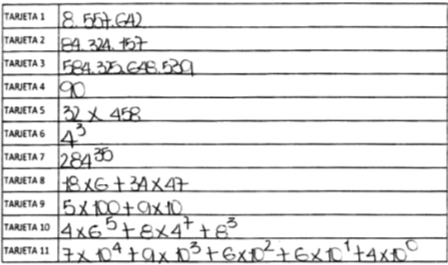 TARJETA 1 8.557.642
TARJETA 2 84.324.157
TARJETA 3 584.325.648.539
TARJETA 4 90
TARJETA 5 32 x 458
TARJETA 6 4³
TARJETA 7 284³⁵
TARJETA 8 18x6 + 34x47
TARJETA 9 5x100+9x10
TARJETA 10 4x6⁵ + 8x4⁷ + 8³
TARJETA 11 7x10⁴ + 9x10³ + 6x10² + 6x10¹ + 4x10⁰